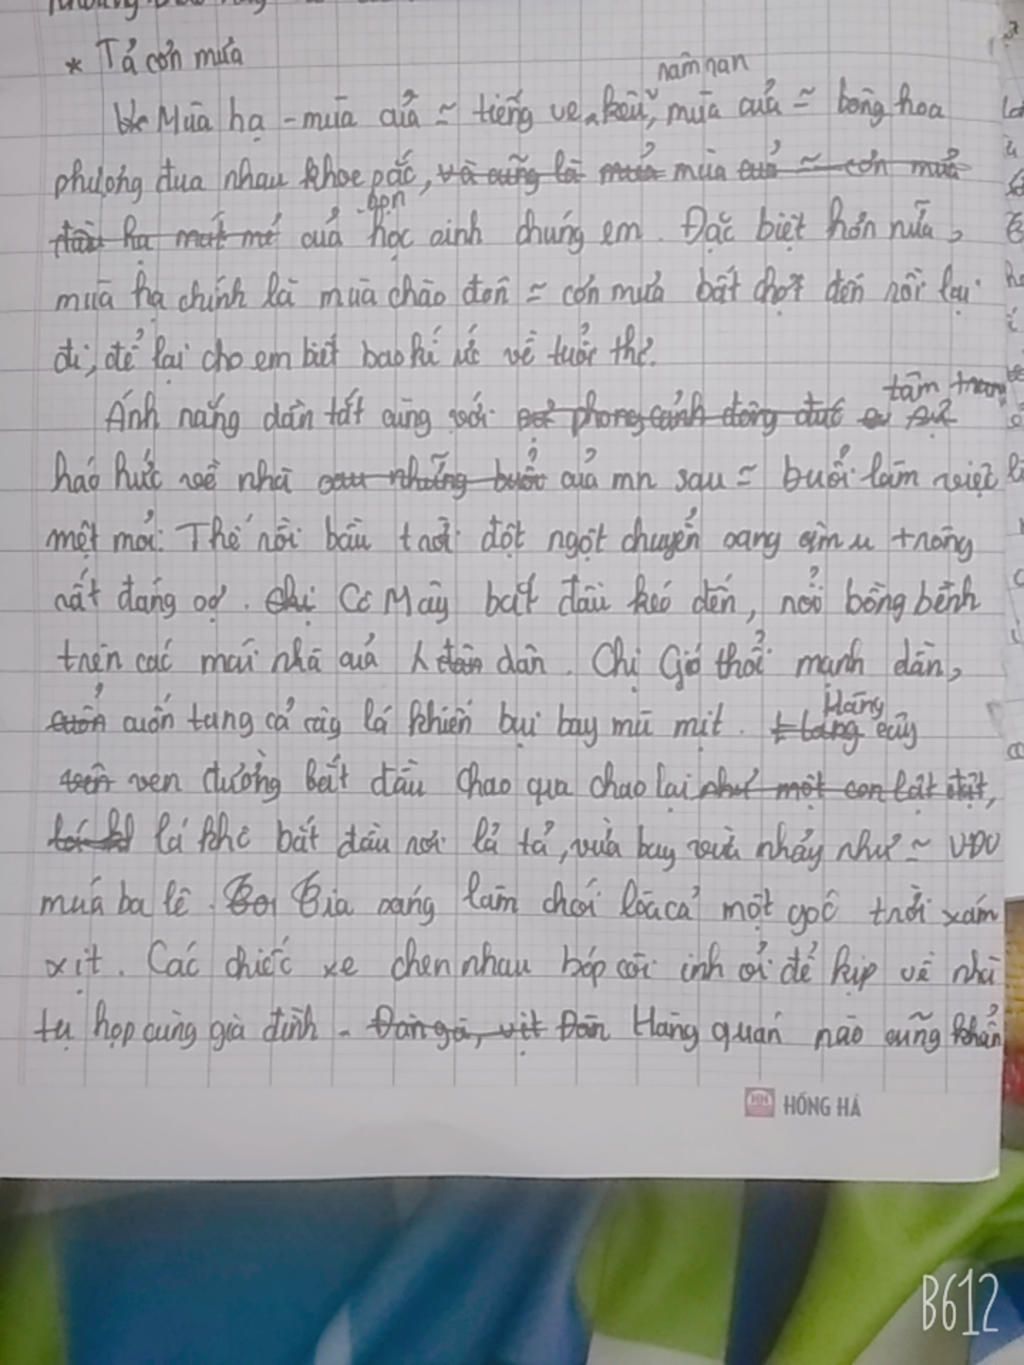 * Tả cơn mưa
Mùa hạ - mùa của ~ tiếng ve kêu râm ran, mùa của ~ bông hoa
phượng đua nhau khoe sắc, và cũng là mùa mùa của ~ cơn mưa
hạ mát mẻ của bọn học sinh chúng em. Đặc biệt hơn nữa,
mùa hạ chính là mùa chào đón ~ cơn mưa bất chợt đến rồi lại
đi, để lại cho em biết bao kí ức về tuổi thơ.
Ánh nắng dần tắt cùng với phong cảnh đông đúc sự tâm trạng
háo hức về nhà sau những buổi của mn sau ~ buổi làm việc
mệt mỏi. Thế rồi bầu trời đột ngột chuyển sang âm u trông
rất đáng sợ. Chị Cô Mây bắt đầu kéo đến, nổi bồng bềnh
trên các mái nhà của dân. Chị Gió thổi mạnh dần,
cuốn cuốn tung cả cây lá khiến bụi bay mù mịt. Hàng cây
ven ven đường bắt đầu chao qua chao lại như một con lật đật,
lá khô bắt đầu rơi lả tả, vừa bay vừa nhảy như ~ VĐV
múa ba lê. Tia sáng làm chói lòa cả một góc trời xám
xịt. Các chiếc xe chen nhau bóp còi inh ỏi để kịp về nhà
tụ họp cùng gia đình. Đàn gà, vịt Đàn Hàng quán nào cũng khẩn
HỒNG HÀ
B612